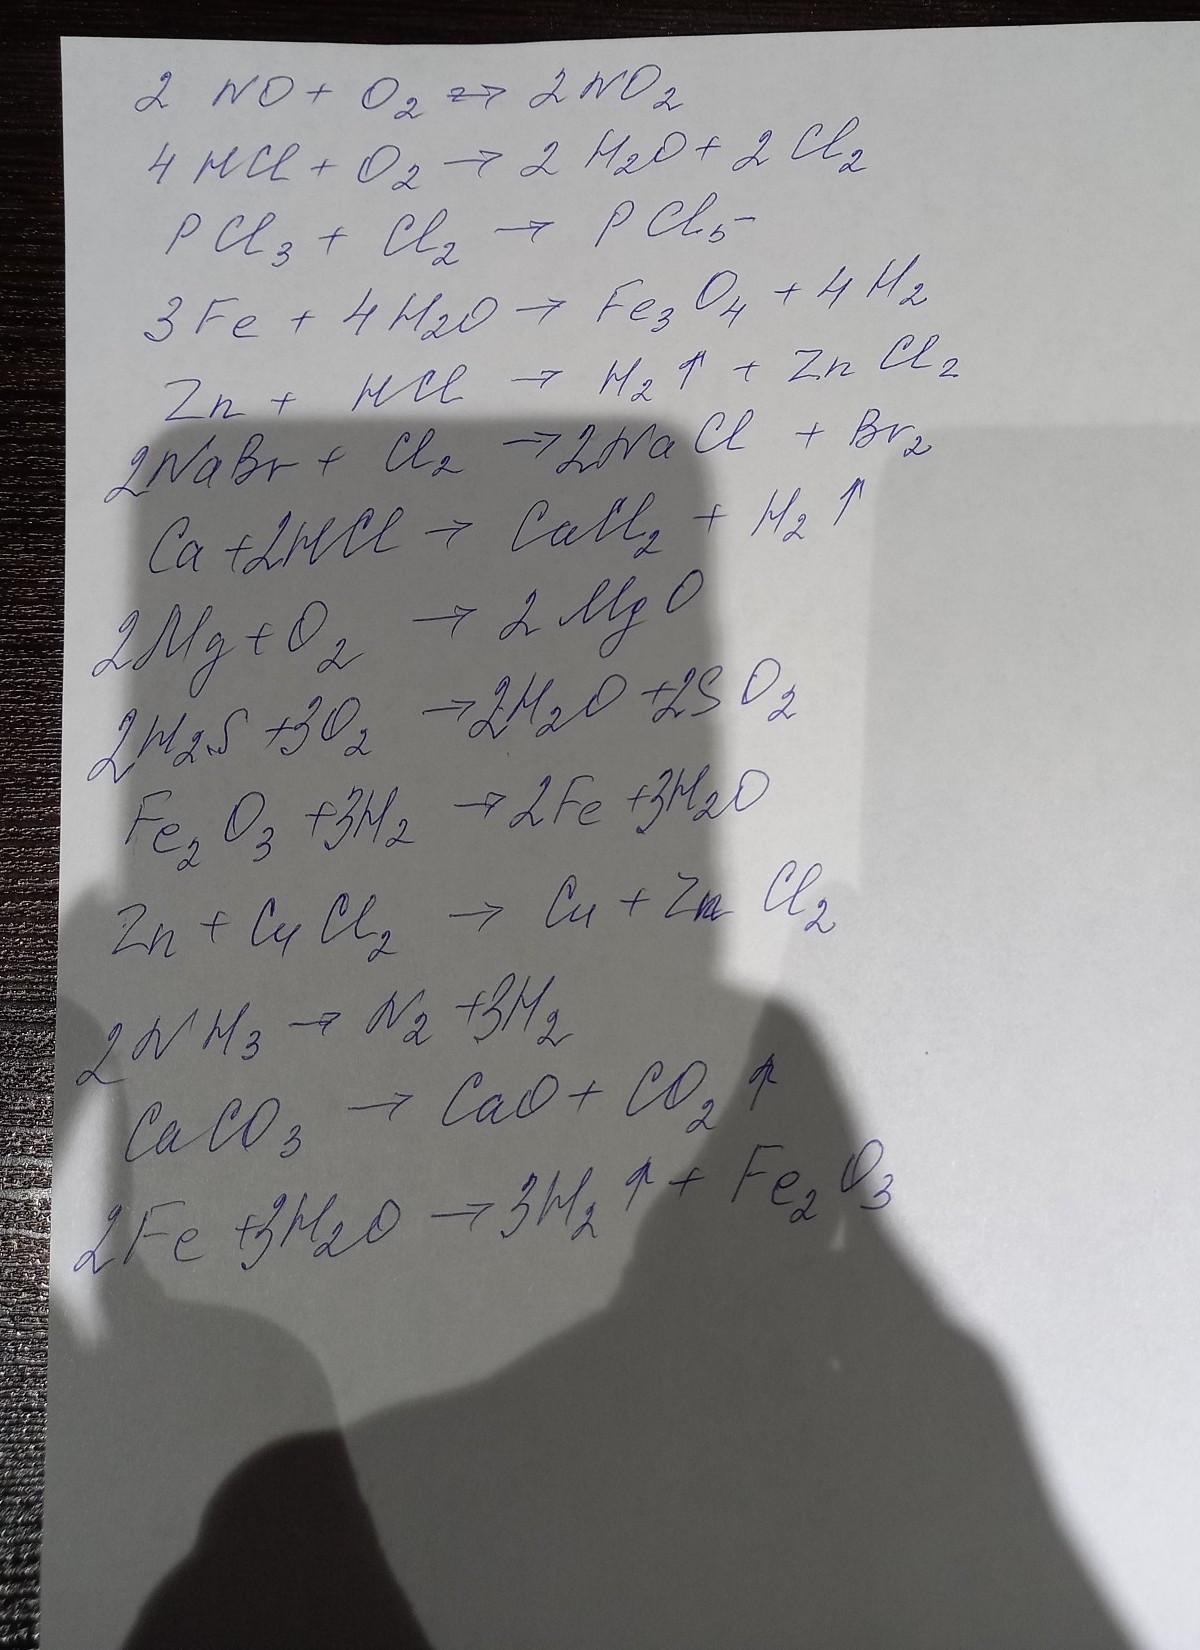 2 NO + O2 ⇄ 2NO2
4 HCl + O2 → 2 H2O + 2 Cl2
PCl3 + Cl2 → PCl5
3Fe + 4H2O → Fe3O4 + 4H2
Zn + HCl → H2↑ + ZnCl2
2NaBr + Cl2 → 2NaCl + Br2
Ca + 2HCl → CaCl2 + H2↑
2Mg + O2 → 2MgO
2H2S + 3O2 → 2H2O + 2SO2
Fe2O3 + 3H2 → 2Fe + 3H2O
Zn + CuCl2 → Cu + ZnCl2
2NH3 → N2 + 3H2
CaCO3 → CaO + CO2↑
2Fe + 3H2O → 3H2↑ + Fe2O3